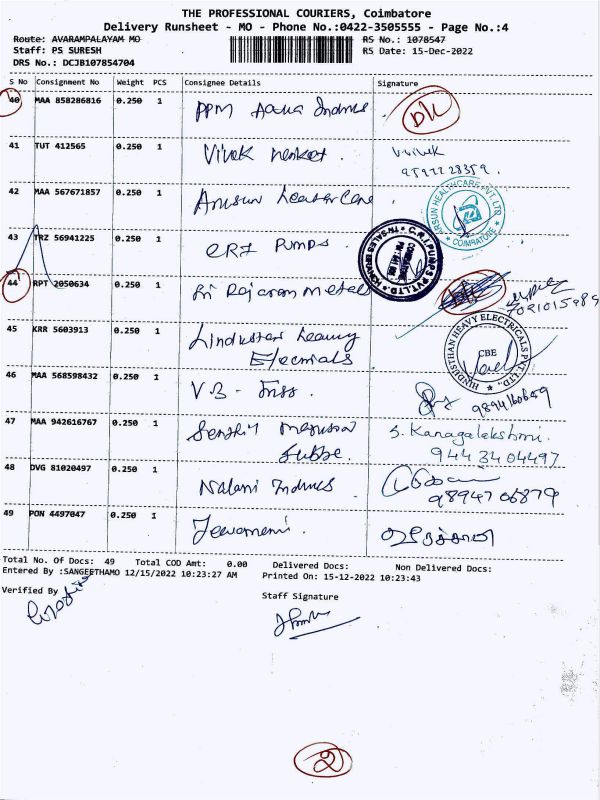 THE PROFESSIONAL COURIERS, Coimbatore
Delivery Runsheet - MO - Phone No.:0422-3505555 - Page No.:4
Route: AVARAMPALAYAM MO RS No.: 1078547
Staff: PS SURESH RS Date: 15-Dec-2022
DRS No.: DCJB107854704
S No Consignment No Weight PCS Consignee Details Signature
40 MAA 858286816 0.250 1 PPM
41 TUT 412565 0.250 1 Vivek Vivek
42 MAA 567671857 0.250 1
ARSUN HEALTHCARE PVT. LTD COIMBATORE
43 TRZ 56941225 0.250 1 CRI PUMPS
C.R.I. PUMPS PVT LTD.
44 RPT 2050634 0.250 1 Sri Rajaram metals
45 KRR 5603913 0.250 1
HINDUSTHAN HEAVY ELECTRICALS PVT. LTD. CBE
46 MAA 568598432 0.250 1 V.B -
47 MAA 942616767 0.250 1 S. Kanagalakshmi.
9443404497
48 DVG 81020497 0.250 1 Nalani
9894706879
49 PON 4497047 0.250 1
Total No. Of Docs: 49 Total COD Amt: 0.00 Delivered Docs: Non Delivered Docs:
Entered By :SANGEETHAMO 12/15/2022 10:23:27 AM Printed On: 15-12-2022 10:23:43
Verified By Staff Signature
2